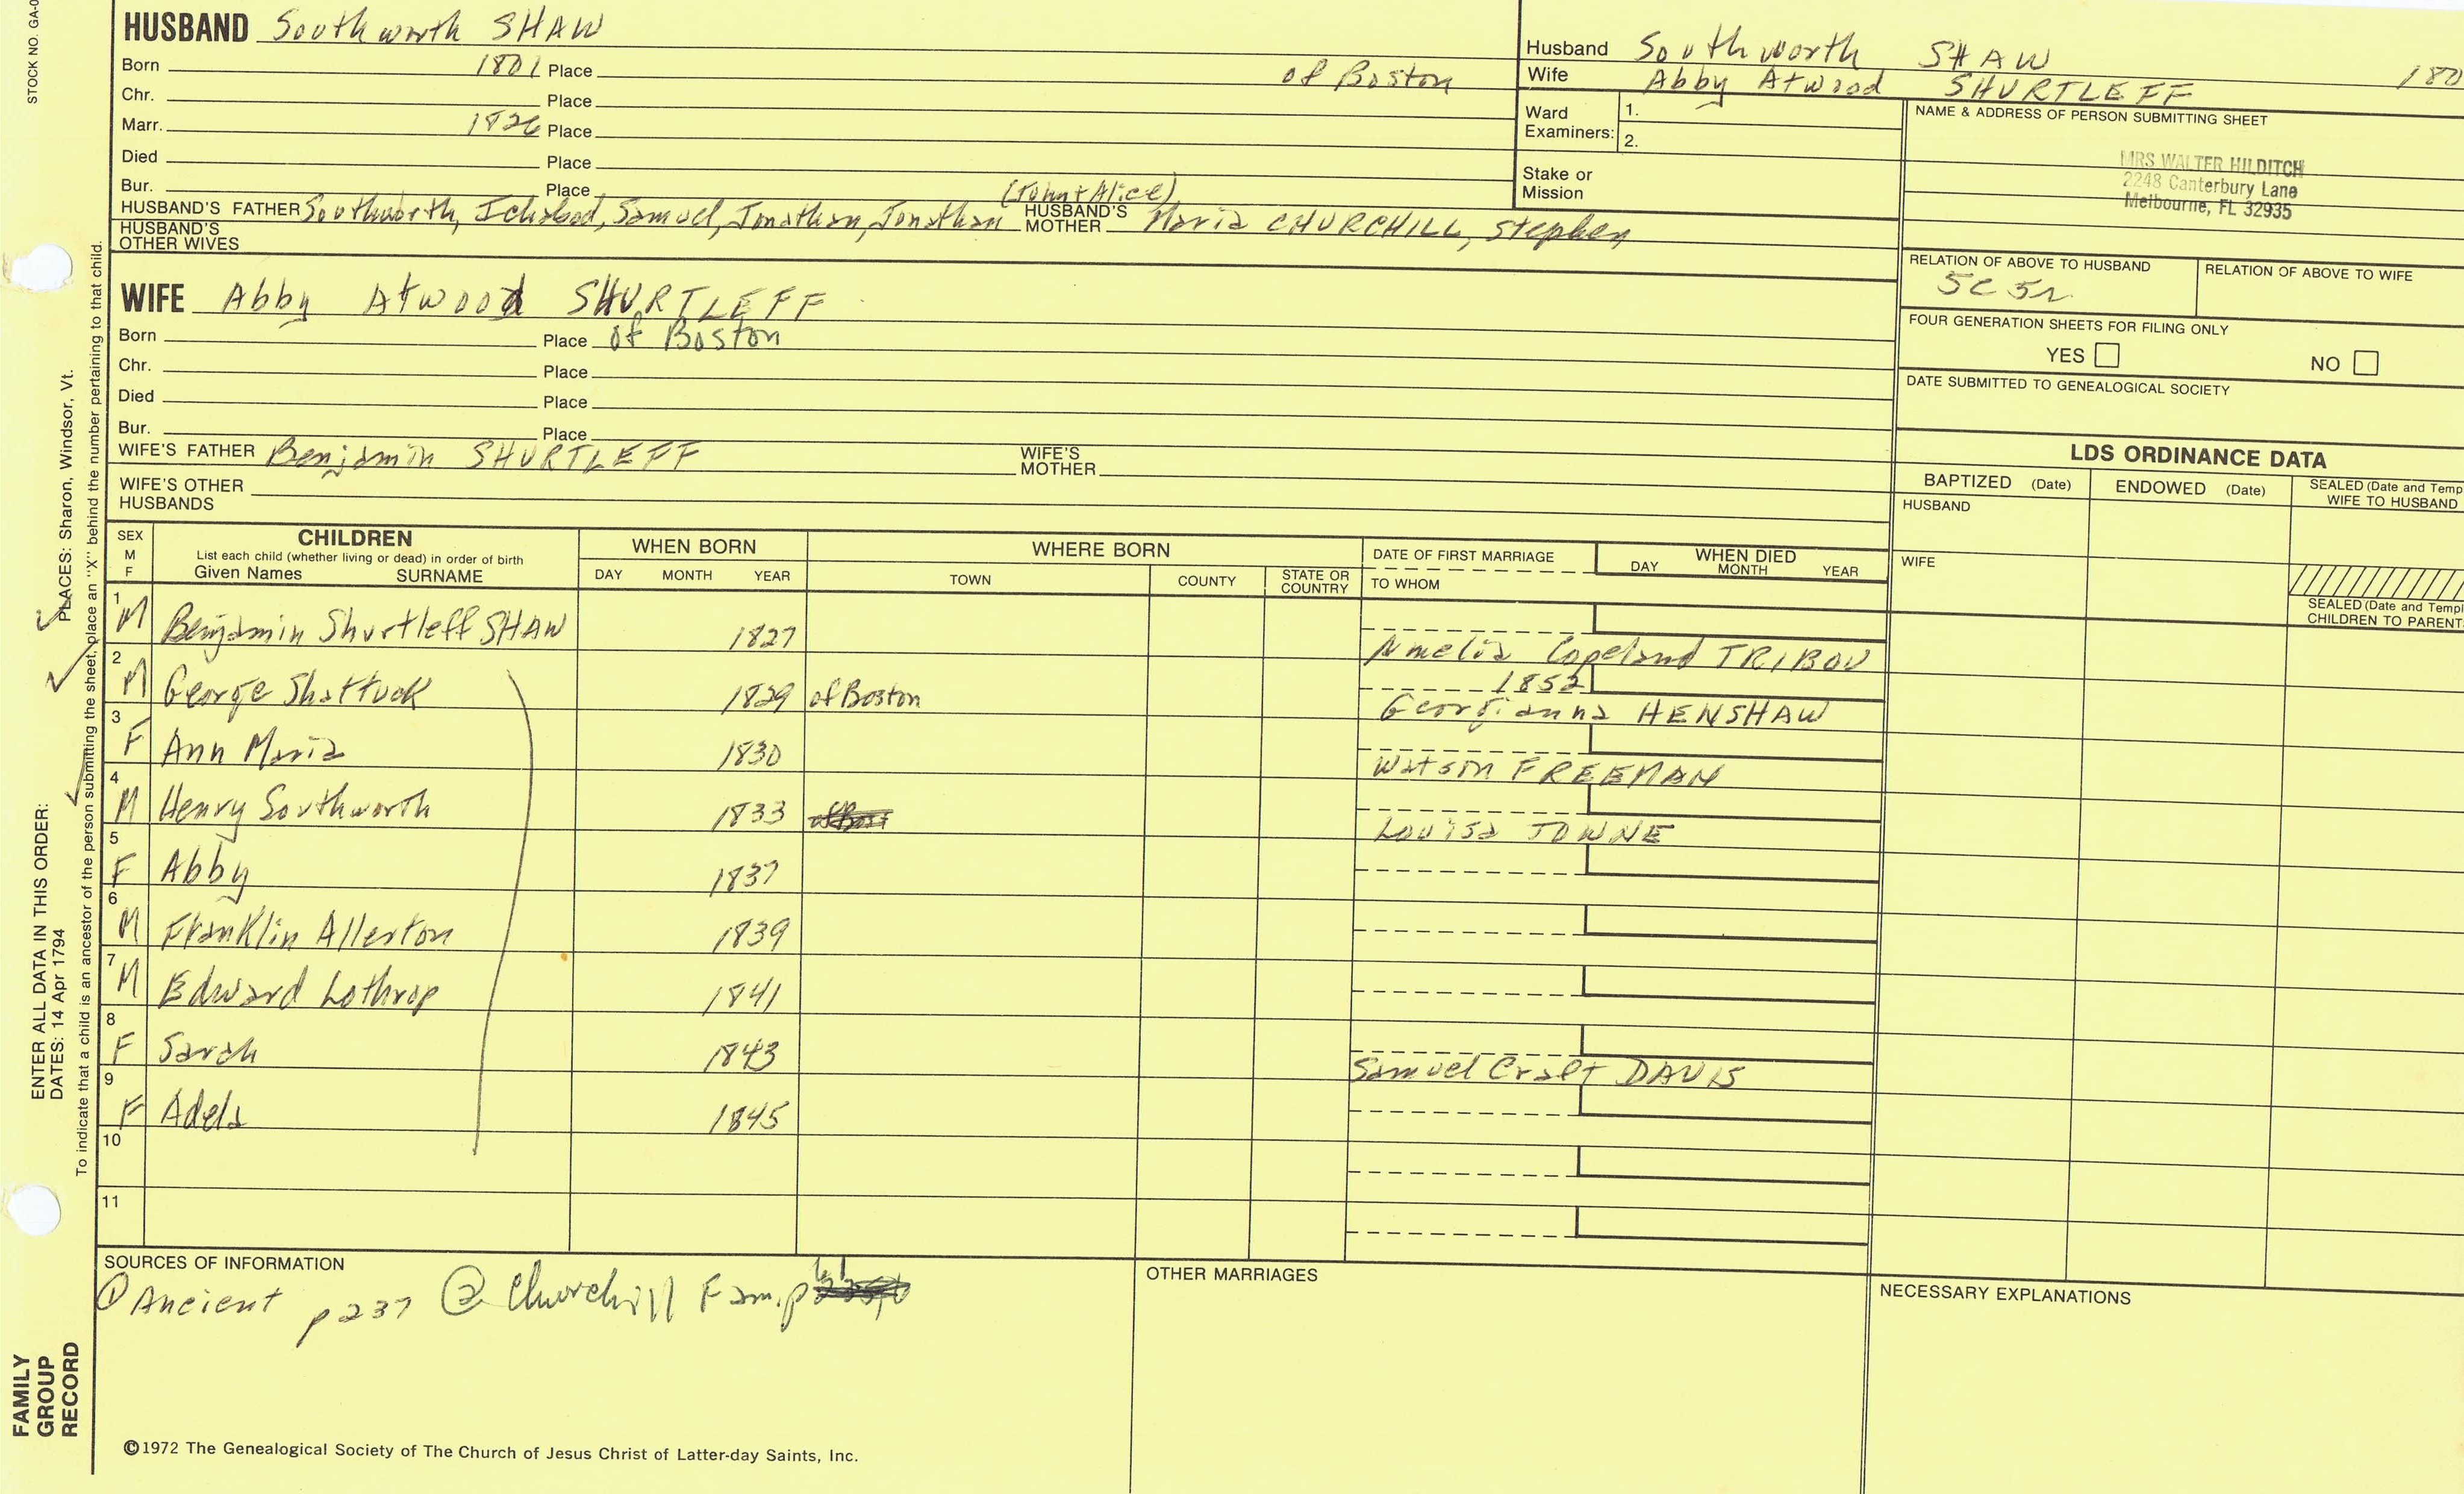 STOCK NO. GA-0
HUSBAND Southworth SHAW
Born 1801 Place of Boston
Chr. Place
Marr. 1826 Place
Died Place
Bur. Place
(John + Alice)
HUSBAND'S FATHER Southworth, Ichabod, Samuel, Jonathan, Jonathan HUSBAND'S MOTHER Maria CHURCHILL, Stephen
HUSBAND'S OTHER WIVES
Husband Southworth SHAW 180
Wife Abby Atwood SHURTLEFF
Ward Examiners: 1.
2.
Stake or Mission
NAME & ADDRESS OF PERSON SUBMITTING SHEET
MRS WALTER HILDITCH
2248 Canterbury Lane
Melbourne, FL 32935
RELATION OF ABOVE TO HUSBAND RELATION OF ABOVE TO WIFE
5C 5r
FOUR GENERATION SHEETS FOR FILING ONLY
YES NO
DATE SUBMITTED TO GENEALOGICAL SOCIETY
WIFE Abby Atwood SHURTLEFF
Born Place of Boston
Chr. Place
Died Place
Bur. Place
WIFE'S FATHER Benjamin SHURTLEFF WIFE'S MOTHER
WIFE'S OTHER HUSBANDS
LDS ORDINANCE DATA
BAPTIZED (Date) ENDOWED (Date) SEALED (Date and Temp
WIFE TO HUSBAND
HUSBAND
WIFE
SEALED (Date and Templ
CHILDREN TO PARENTS
SEX M F CHILDREN WHEN BORN WHERE BORN DATE OF FIRST MARRIAGE WHEN DIED
List each child (whether living or dead) in order of birth
Given Names SURNAME DAY MONTH YEAR TOWN COUNTY STATE OR COUNTRY TO WHOM DAY MONTH YEAR
1 M Benjamin Shurtleff SHAW 1827 Amelia Copeland TRIBOU
2 M George Shattuck 1829 of Boston 1852 Georgianna HENSHAW
3 F Ann Maria 1830 Watson FREEMAN
4 M Henry Southworth 1833 Louisa TOWNE
5 F Abby 1837
6 M Franklin Allerton 1839
7 M Edward Lothrop 1841
8 F Sarah 1843 Samuel Craft DAVIS
9 F Adela 1845
10
11
SOURCES OF INFORMATION
① Ancient p 237 ② Churchill Fam. p
OTHER MARRIAGES
NECESSARY EXPLANATIONS
©1972 The Genealogical Society of The Church of Jesus Christ of Latter-day Saints, Inc.
FAMILY GROUP RECORD
ENTER ALL DATA IN THIS ORDER:
DATES: 14 Apr 1794
PLACES: Sharon, Windsor, Vt.
To indicate that a child is an ancestor of the person submitting the sheet, place an "X" behind the number pertaining to that child.